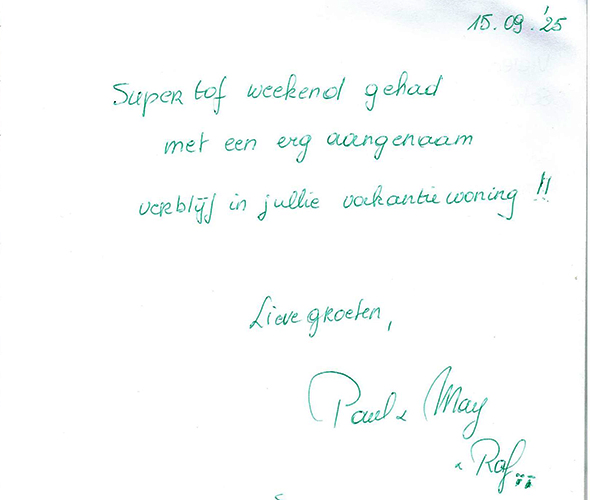 15.09.'25
Super tof weekend gehad
met een erg aangenaam
verblijf in jullie vakantiewoning !!
Lieve groeten,
Paul & May
& Raf